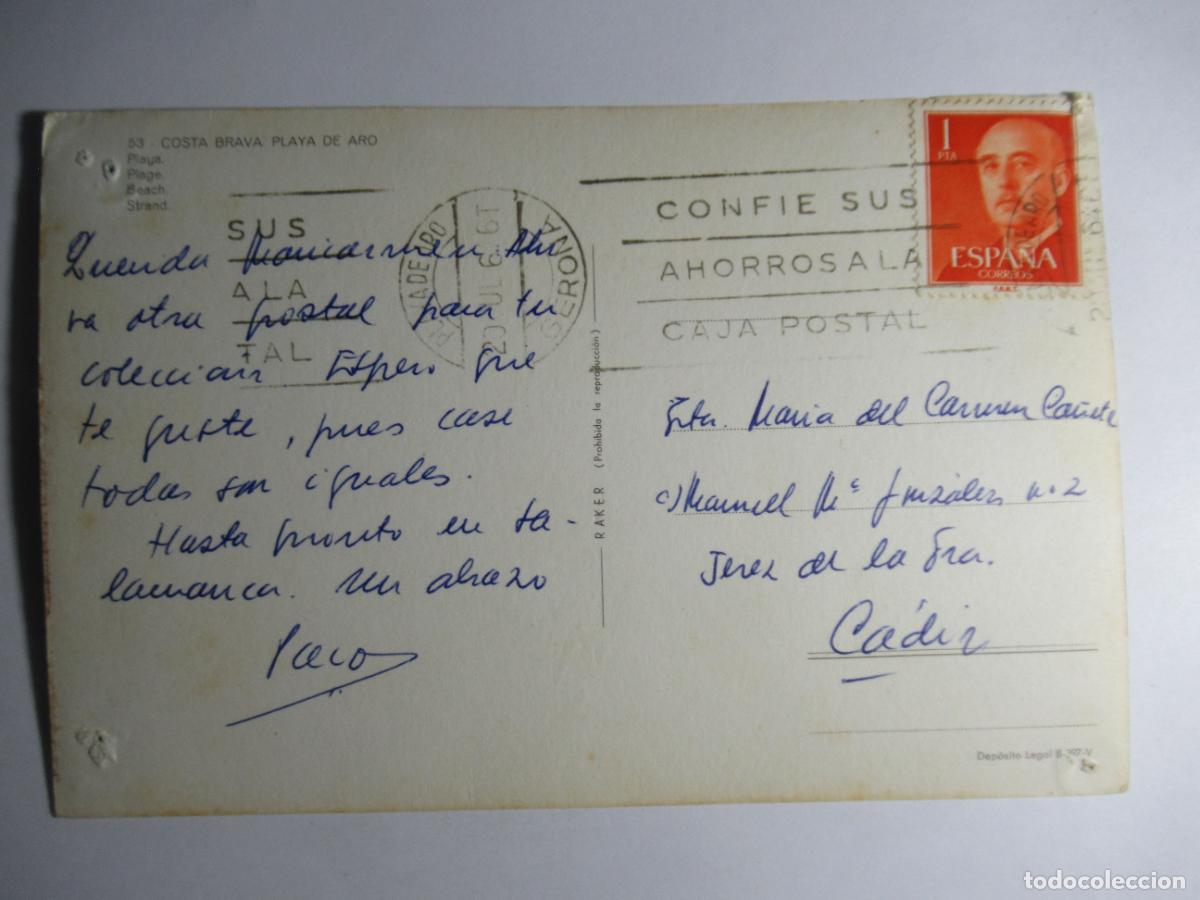 53 - COSTA BRAVA. PLAYA DE ARO
Playa.
Plage.
Beach.
Strand.
SUS
A LA
TAL
GERONA
CONFIE SUS
AHORROS A LA
CAJA POSTAL
1
PTA
ESPAÑA
CORREOS
Querida Maricarmen Aho
va otra postal para tu
coleccion Espero que
te guste, pues case
todas son iguales.
Hasta pronto en Sa-
lamanca. Un abrazo
Paco
RAKER (Prohibida la reproducción)
Srta. Maria del Carmen Cañete
c) Manuel Mª González n. 2
Jerez de la Fra.
Cádiz
Depósito Legal B-
todocoleccion